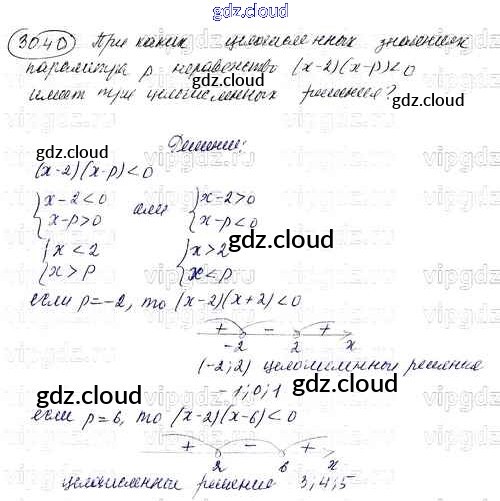 gdz.cloud
30.40 При каких целочисленных значениях
параметра p неравенство (x-2)(x-p)<0
имеет три целочисленных решения?
Решение:
gdz.cloud
gdz.cloud
(x-2)(x-p)<0
{x-2<0 или {x-2>0
{x-p>0 {x-p<0
gdz.cloud
{x<2 {x>2
{x>p {x<p
если p=-2, то (x-2)(x+2)<0
+ - +
-2 2 x
gdz.cloud
(-2;2) целочисленные решения
-1; 0; 1
gdz.cloud
если p=6, то (x-2)(x-6)<0
gdz.cloud
+ - +
2 6 x
целочисленные решения 3, 4, 5